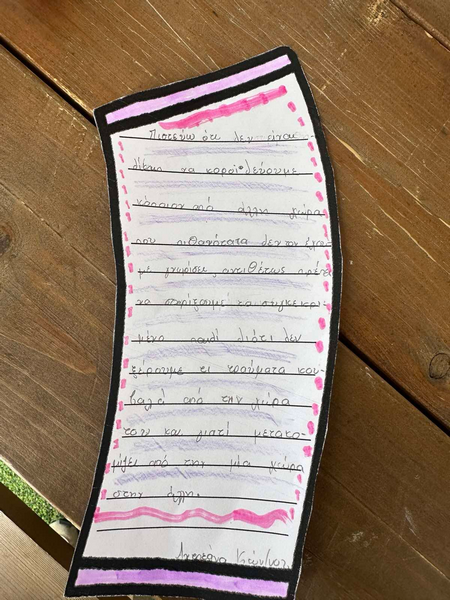 Πιστεύω ότι δεν είναι
δίκαιη να κοροϊδεύουμε
κάποιον από άλλη χώρα
που πιθανότατα δεν την έχου-
με γνωρίσει, αντιθέτως πρέπει
να στηρίξουμε το συγκεκρι-
μένο παιδί διότι δεν
ξέρουμε τι τραύματα κου-
βαλά από την χώρα
του και γιατί μετακο-
μίζει από την μία χώρα
στην άλλη.